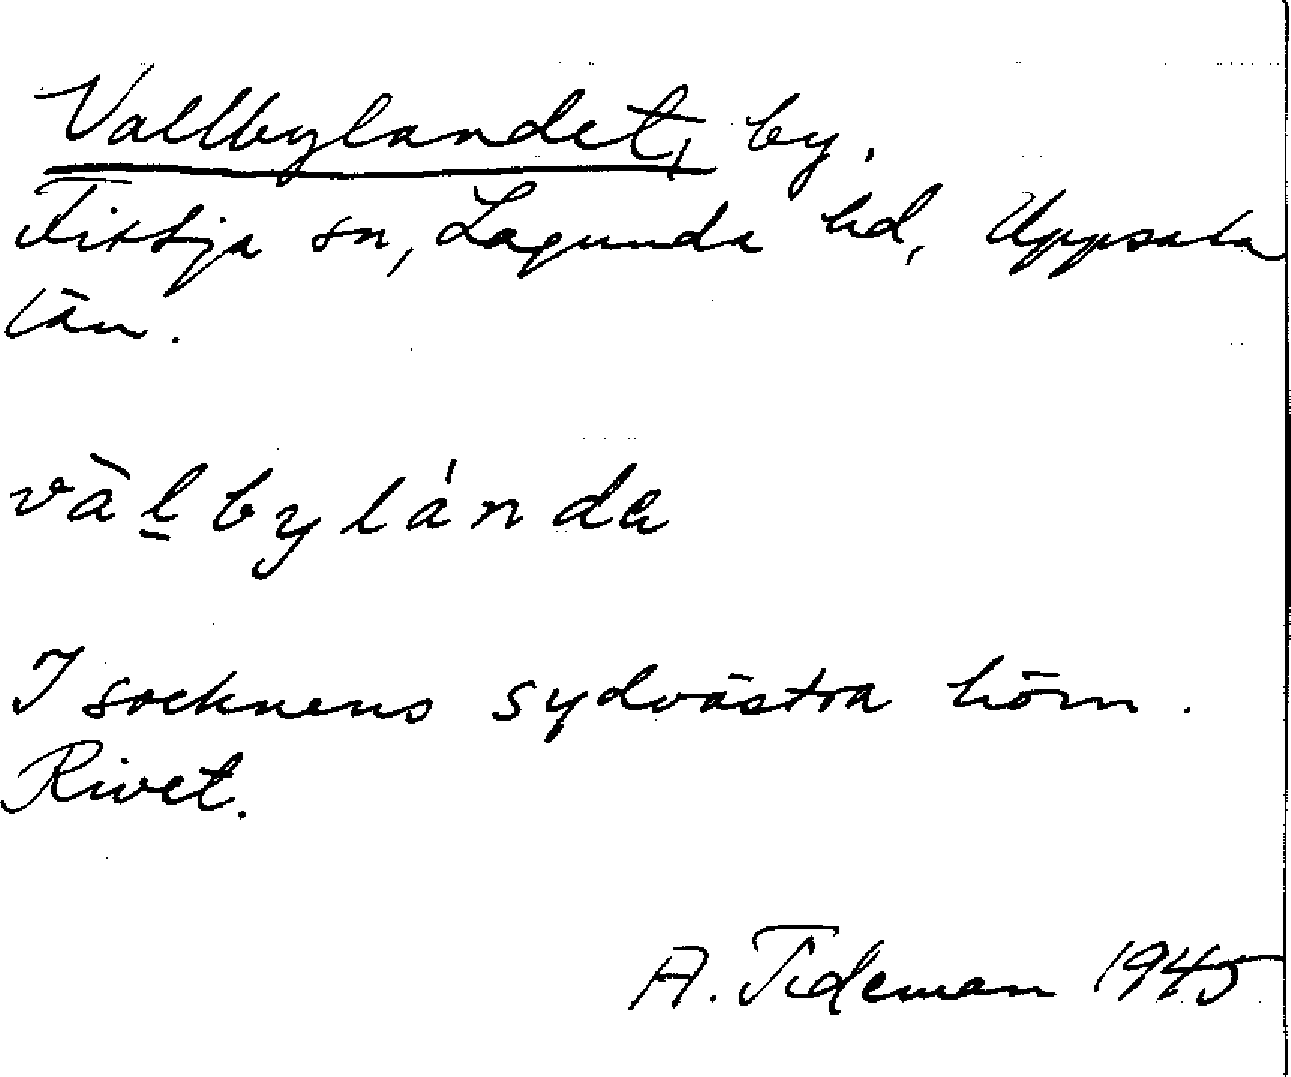 Vallbylandet, by.
Fittja sn, Lagunda hd, Uppsala
län.
vàl̲bylánda
I socknens sydvästra hörn.
Rivet.
A. Tideman 1945